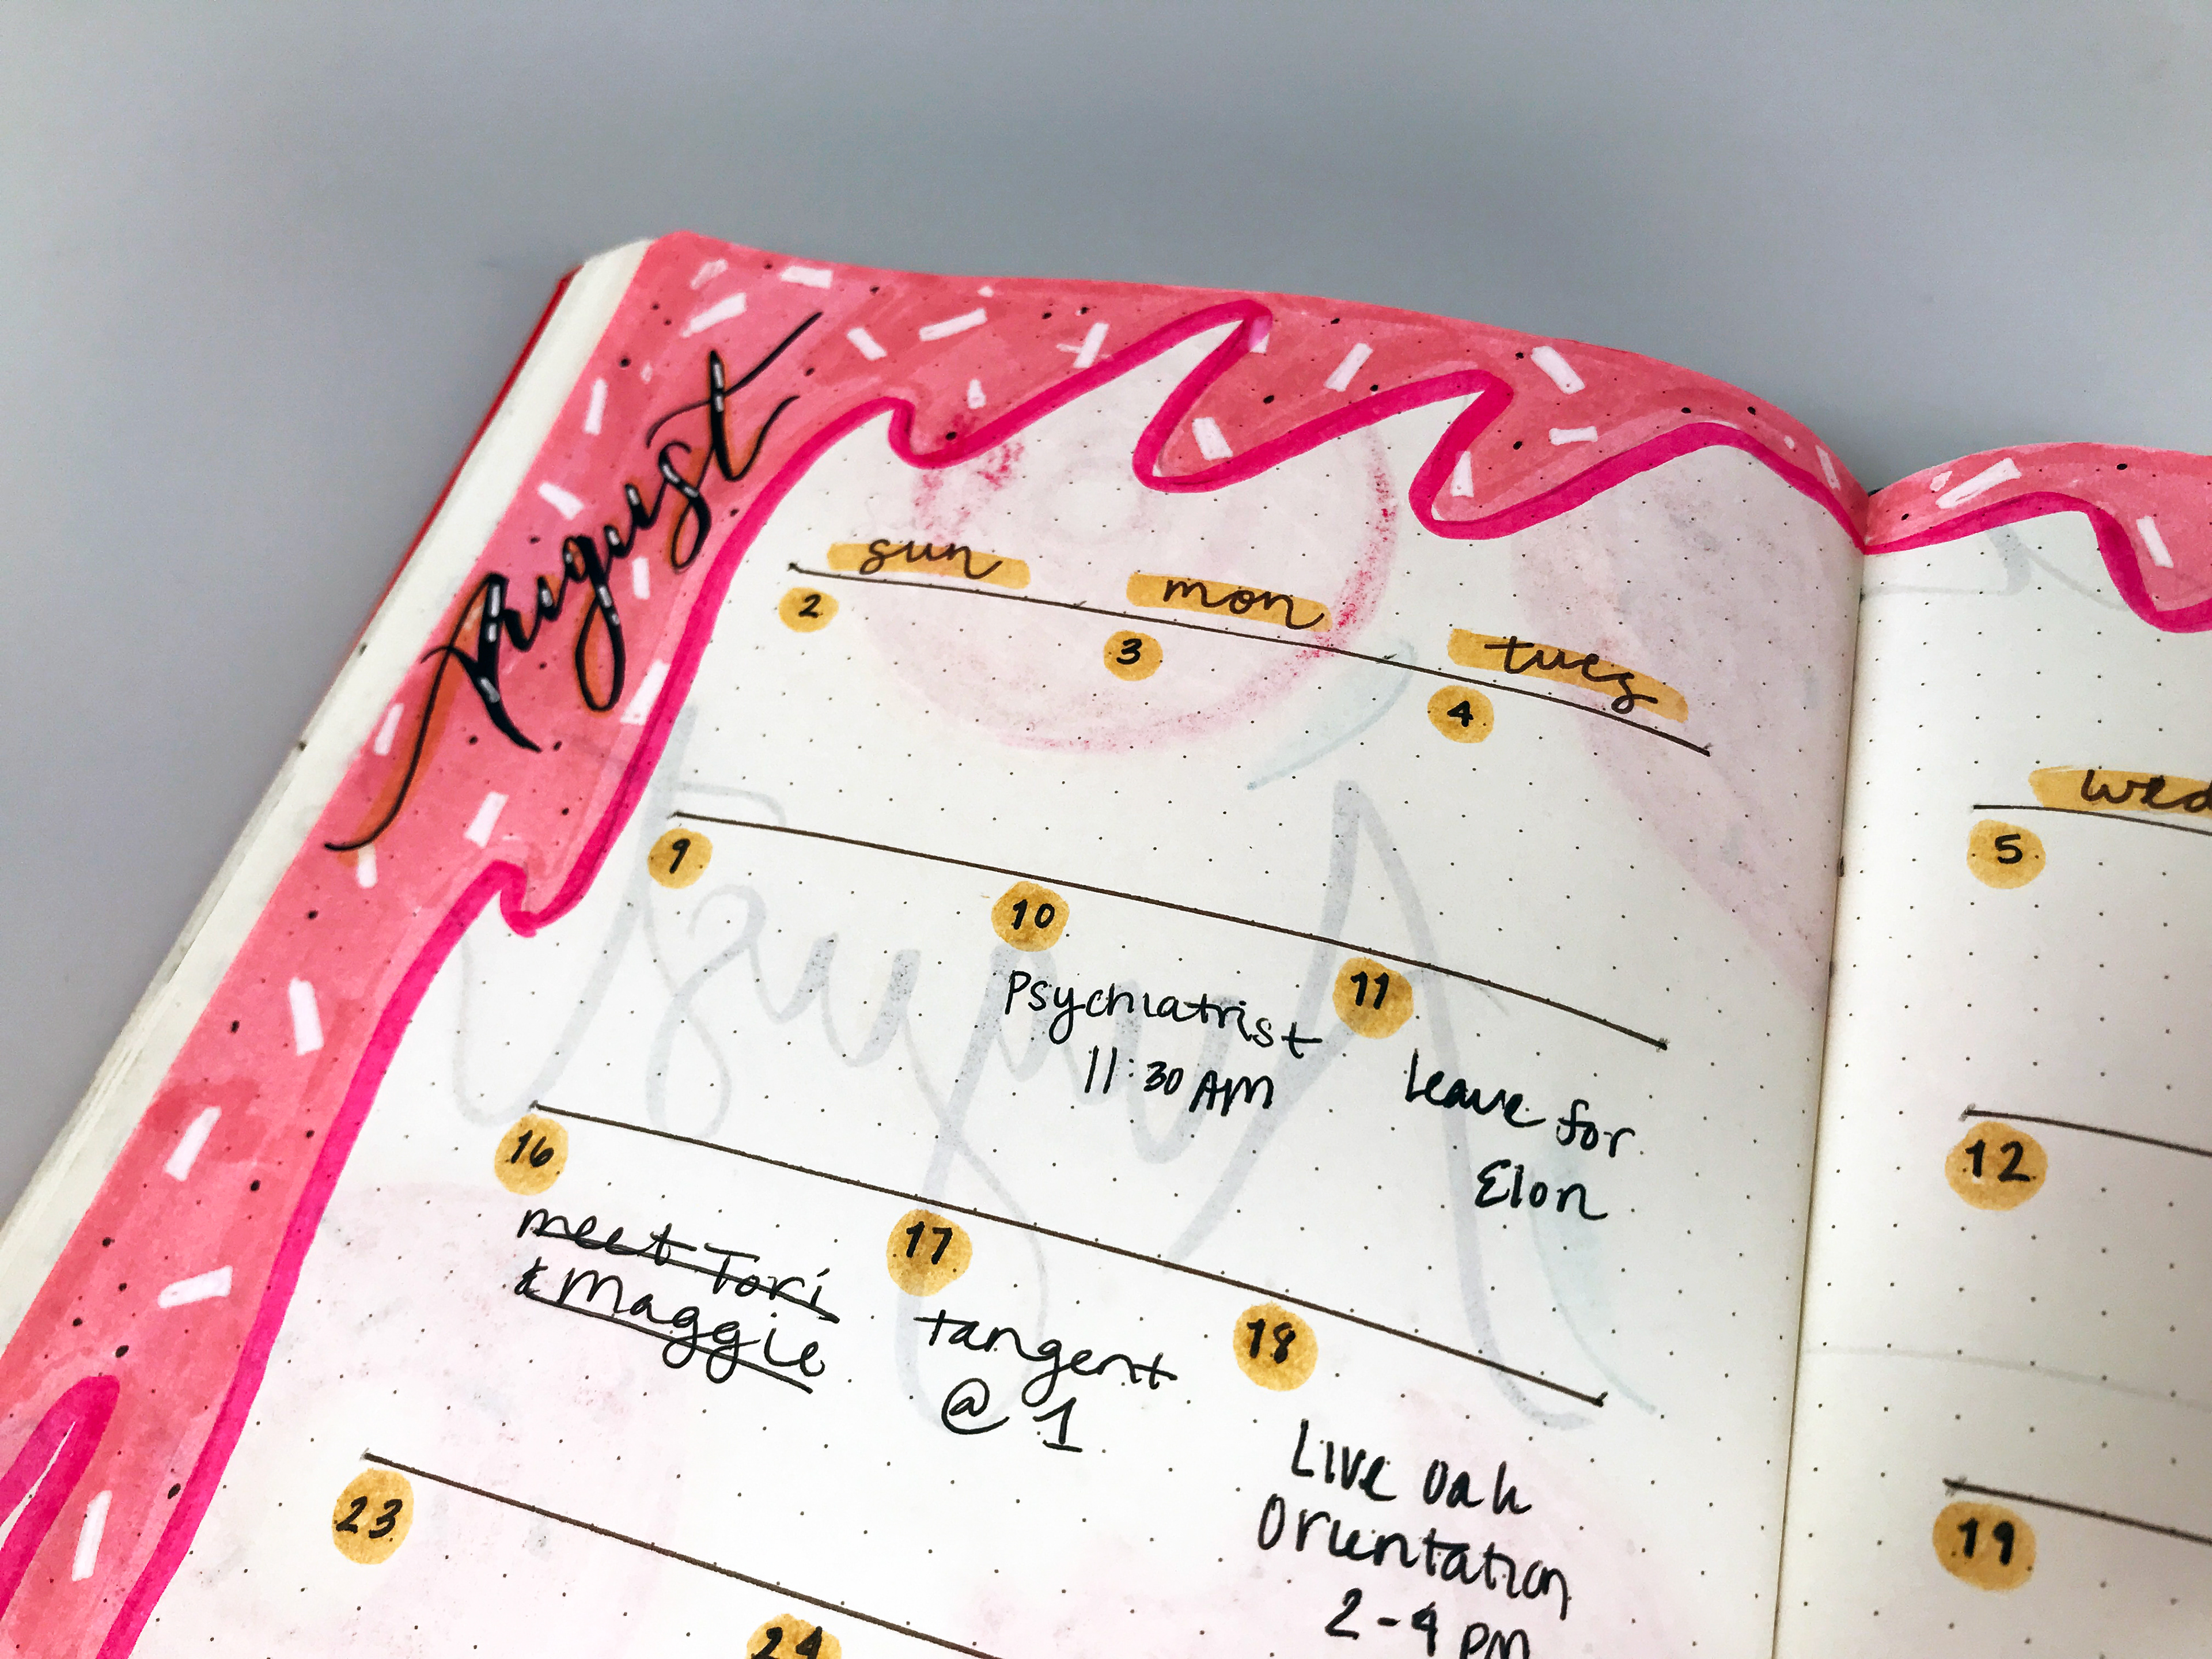 August
sun mon tues
2 3 4
9 10 11
Psychiatrist
11:30 AM
Leave for
Elon
16 17 18
meet Tori
& Maggie
tangent
@ 1
Live Oak
Orientation
2-4 pm
23 24
wed
5
12
19